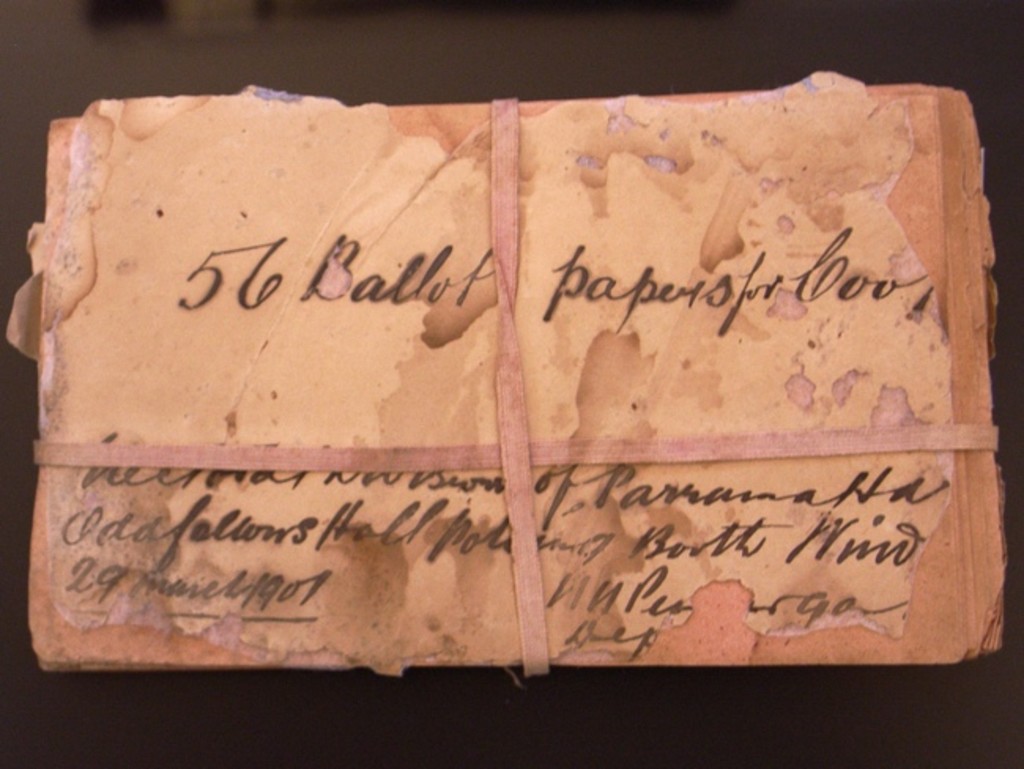 56 Ballot papers for Coo,
Electoral Division of Parramatta
Oddfellows Hall Polling Booth Wind
29 March 1901
Dep